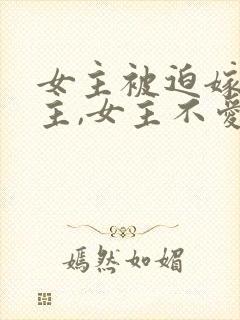 女主被迫嫁
主,女主不爱
嫣然如媚